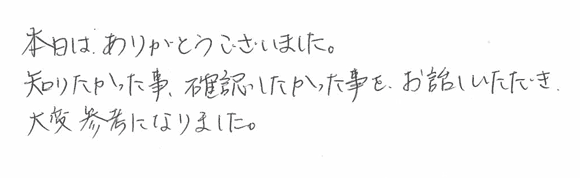 本日は、ありがとうございました。
知りたかった事、確認したかった事を、お話しいただき、
大変参考になりました。